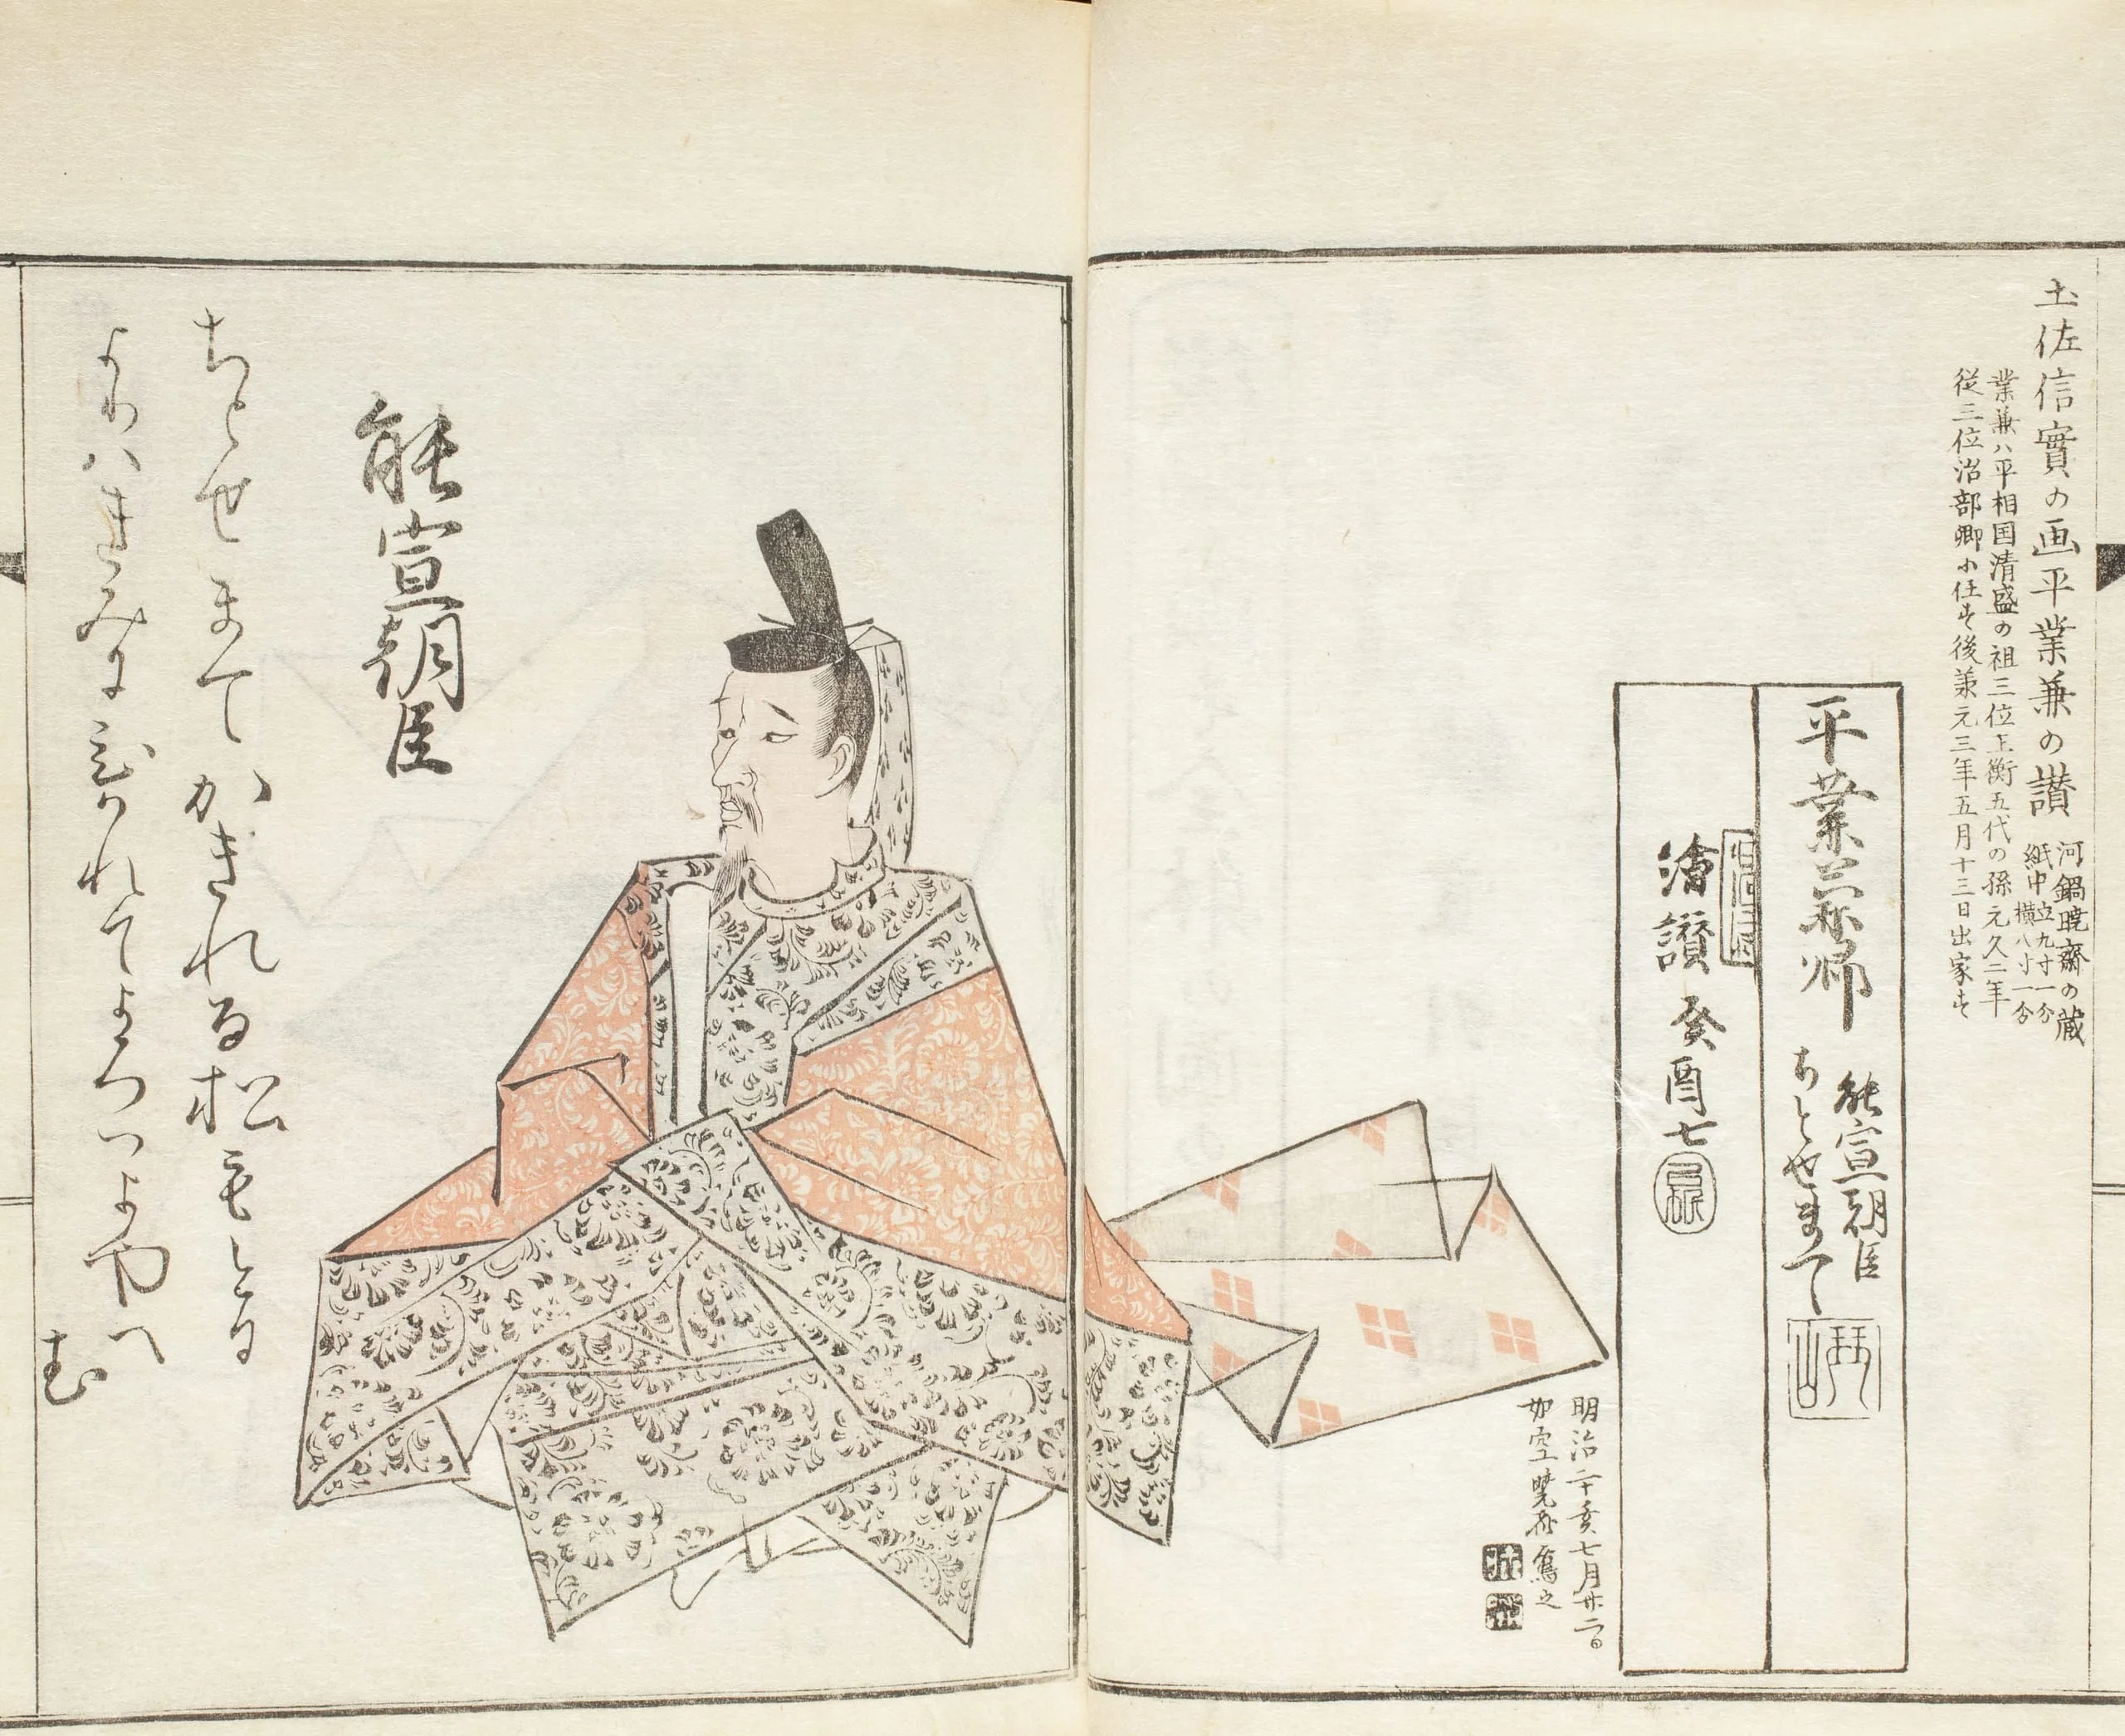 土佐信實の画平業兼の讃
河鍋暁斎の蔵
紙中立九寸一分
横八寸一分
業兼ハ平相国清盛の祖三位正衡五代の孫元久二年
従三位治部卿に任す後兼元三年五月十三日出家す
平業兼卿
能宣朝臣
ちとせまて
繪讃 癸酉七
明治二十亥七月廿二日
如空暁斎寫之
能宣朝臣
ちとせまてかきれる松もけふよりハきみに
ちとせまてかぎれる松もけふ
よりハきみにひかれてよろつよやへ
む